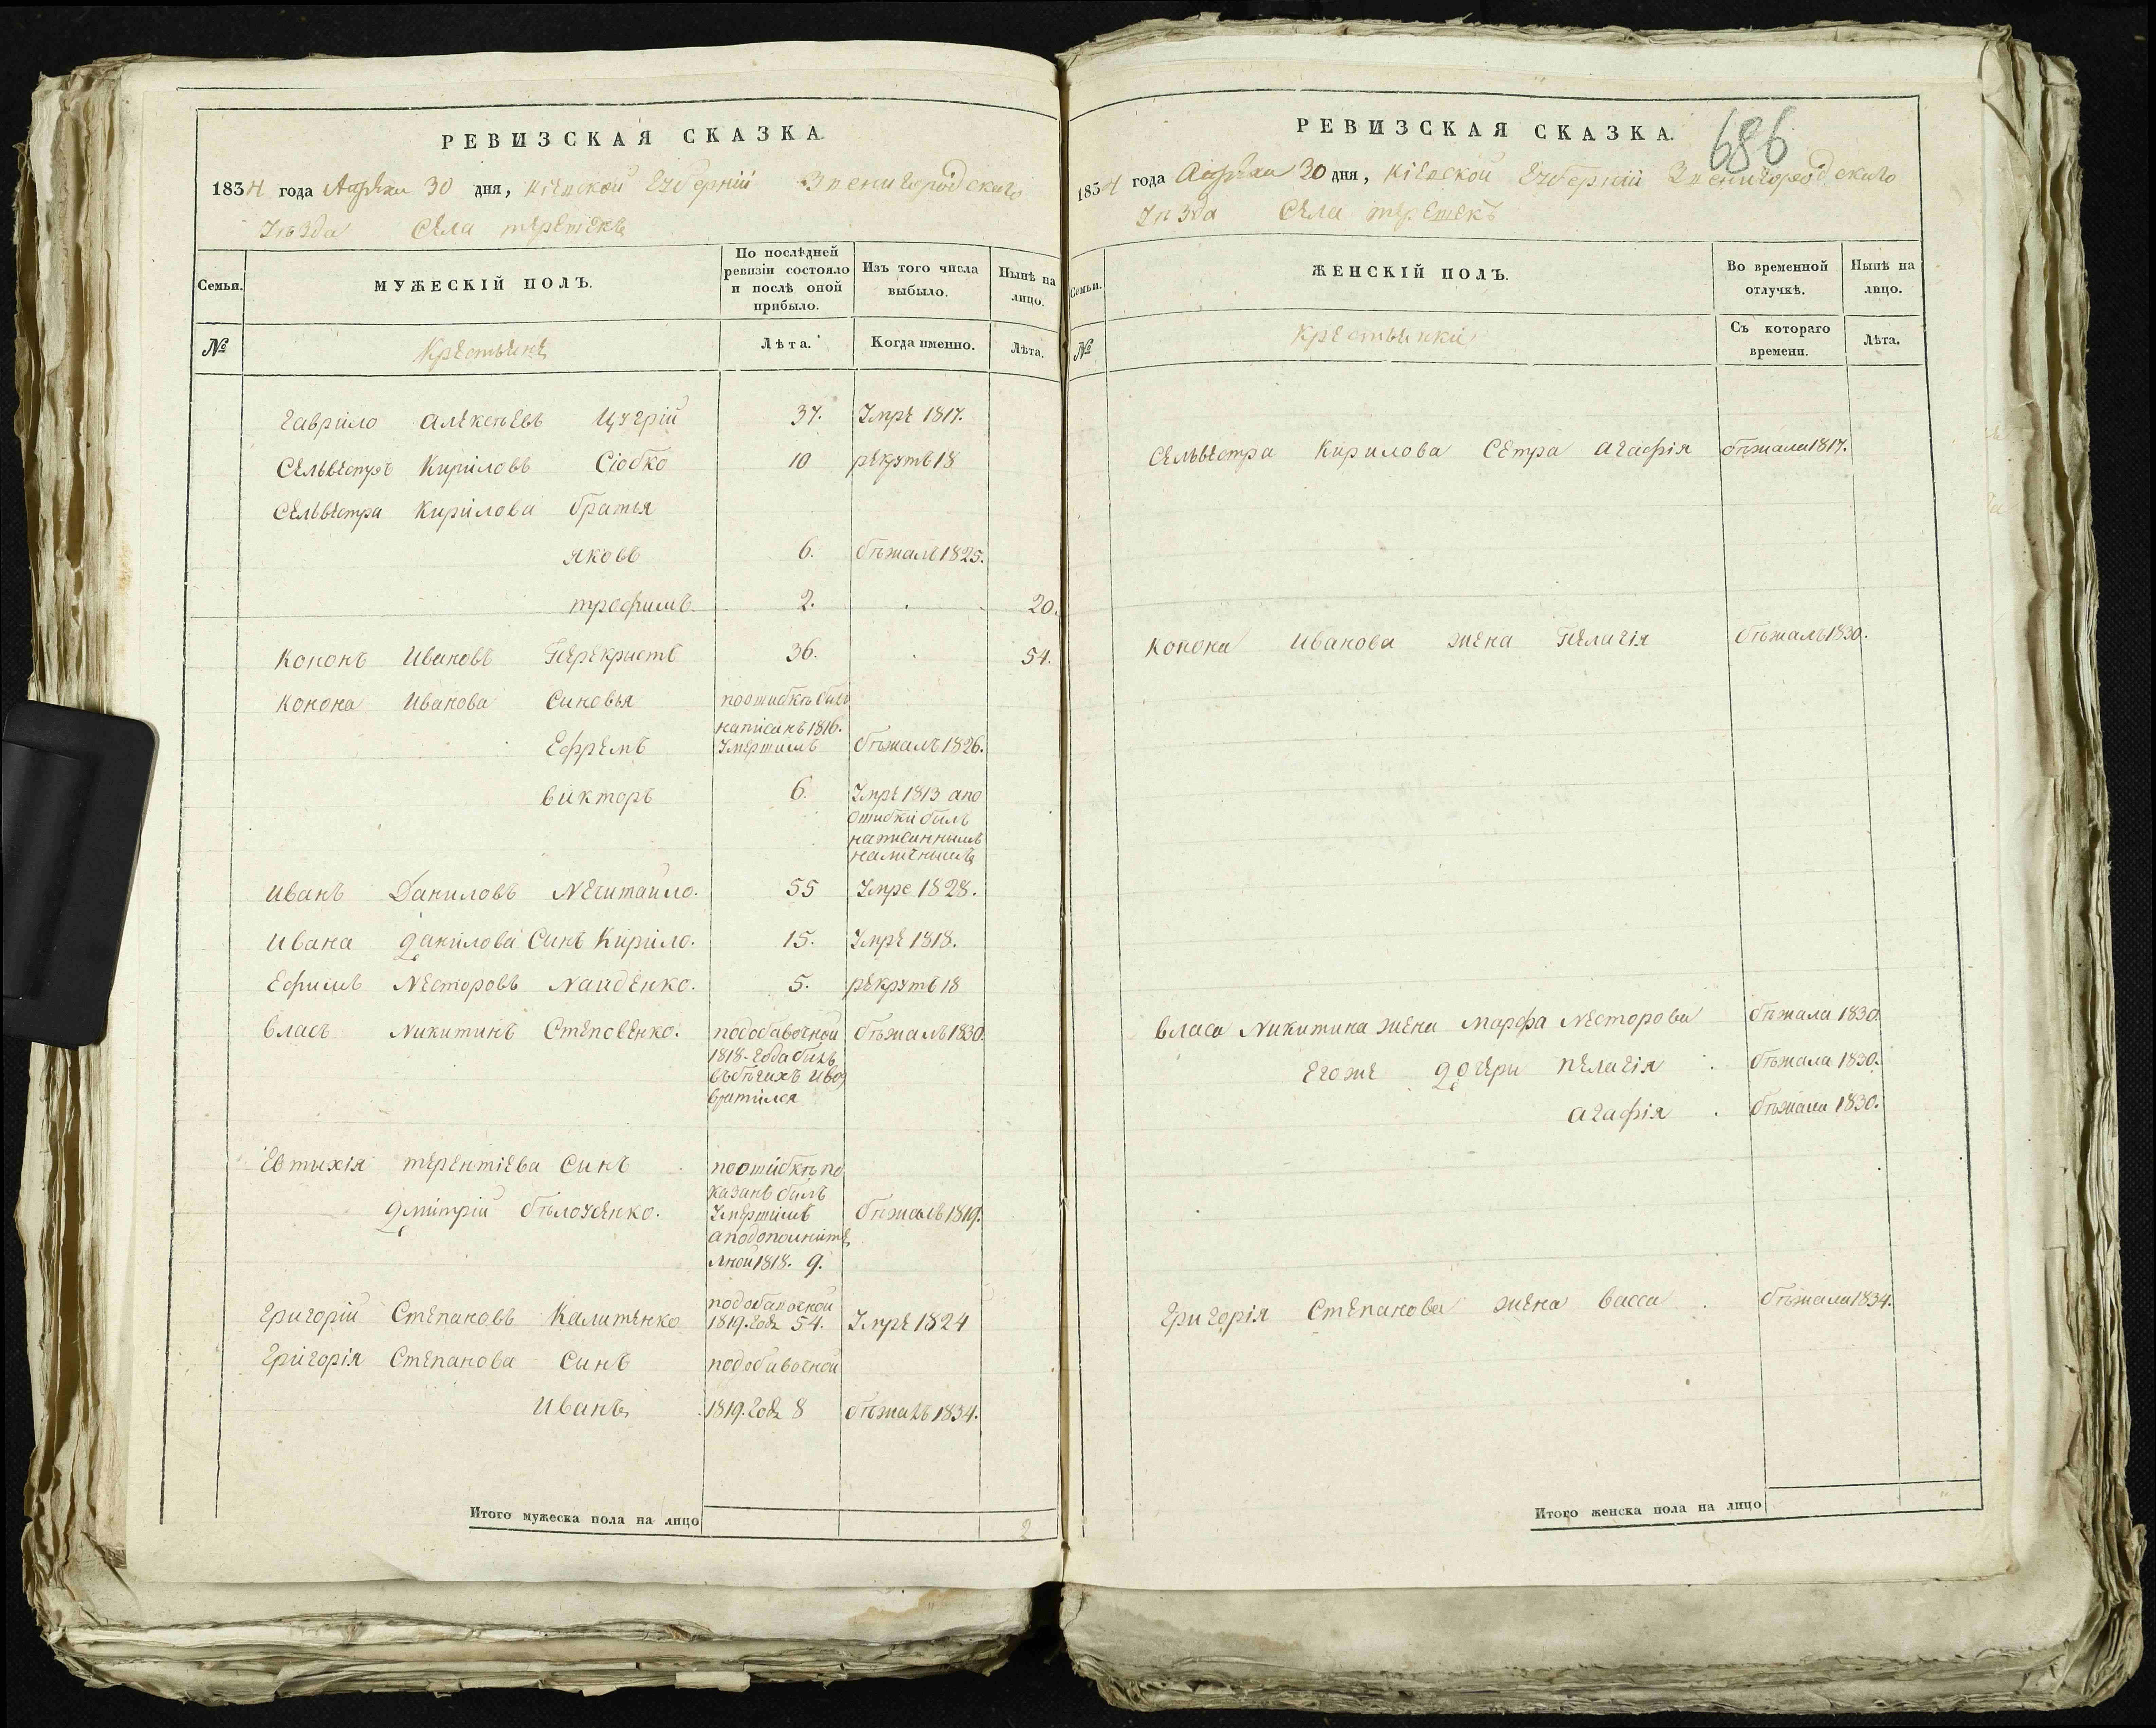 РЕВИЗСКАЯ СКАЗКА
1834 года Апреля 30 дня, Кіевской Губерніи Звенигородскаго
Уезда Села терешекъ
Семьи.
МУЖЕСКІЙ ПОЛЪ.
По послѣдней ревизіи состояло и послѣ оной прибыло.
Изъ того числа выбыло.
Нынѣ на лицо.
№
Крестьяне
Лѣта.
Когда именно.
Лѣта.
Гаврило Алексеевъ Цугрій 37. Умре 1817.
Сельвестръ Кириловъ Сіобко 10 рекрутъ 18
Сельвестра Кирилова братья
яковъ 6. бежалъ 1825.
трофимъ 2. 20.
Кононъ Ивановъ Перекристъ 36. 54.
Конона Иванова Синовья поошибкѣ билъ
написанъ 1816.
Ефремъ Умершимъ бежалъ 1826.
викторъ 6. Умре 1813 апо
ошибки билъ
написаннымъ
Иванъ Даниловъ Нечитайло. 55 Умре 1828.
Ивана Данилова Синъ Кирило. 15. Умре 1818.
Ефимъ Несторовъ Найденко. 5. рекрутъ 18
власъ Никитинъ Степовенко. подобавочной бежалъ 1830.
1818. Года билъ
въбегахъ ивоз
вратился
Евтихія терентіева Синъ поошибкѣ по
казанъ билъ
Дмитрій белоусенко. Умершимъ бежалъ 1819.
аподополните
лной 1818. 9.
Григорій Степановъ Калитенко подобавочной
1819. Года 54. Умре 1824
Григорія Степанова Синъ подобавочной
Иванъ 1819. Года 8 бежалъ 1834.
Итого мужеска пола на лицо 2
686
РЕВИЗСКАЯ СКАЗКА.
1834 года Апреля 30 дня, Кіевской Губерніи Звенигородскаго
Уезда Села терешекъ
Семьи.
ЖЕНСКІЙ ПОЛЪ.
Во временной отлучкѣ.
Нынѣ на лицо.
№
Крестьянки
Съ котораго времени.
Лѣта.
Сельвестра Кирилова Сетра Агафія бежала 1817.
Конона Иванова жена Пелагія бежалъ 1830.
власа Никитина жена Марфа Несторова бежала 1830.
Егоже Дочери Пелагія бежала 1830.
агафія бежала 1830.
Григорія Степанова жена васса бежала 1834.
Итого женска пола на лицо